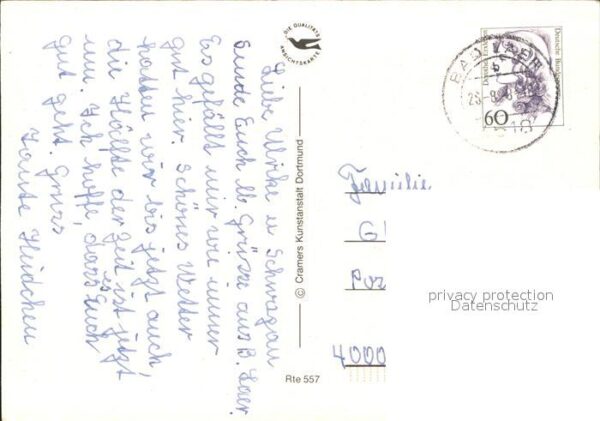 Liebe Ulrike u Schwagau
sende Euch lb Grüsse aus B. Laer.
Es gefällt mir wie immer
gut hier. Schönes Wetter
hatten wir bis jetzt auch,
die Hälfte der Zeit ist jetzt
um. Ich hoffe, dass es Euch
gut geht. Gruss
Tante
DIE QUALITÄTS
ANSICHTSKARTE
© Cramers Kunstanstalt Dortmund
Rte 557
Dorothea Erxleben
Deutsche Bundespost
60
BAD LAER
Familie
G
Por
4000
privacy protection
Datenschutz